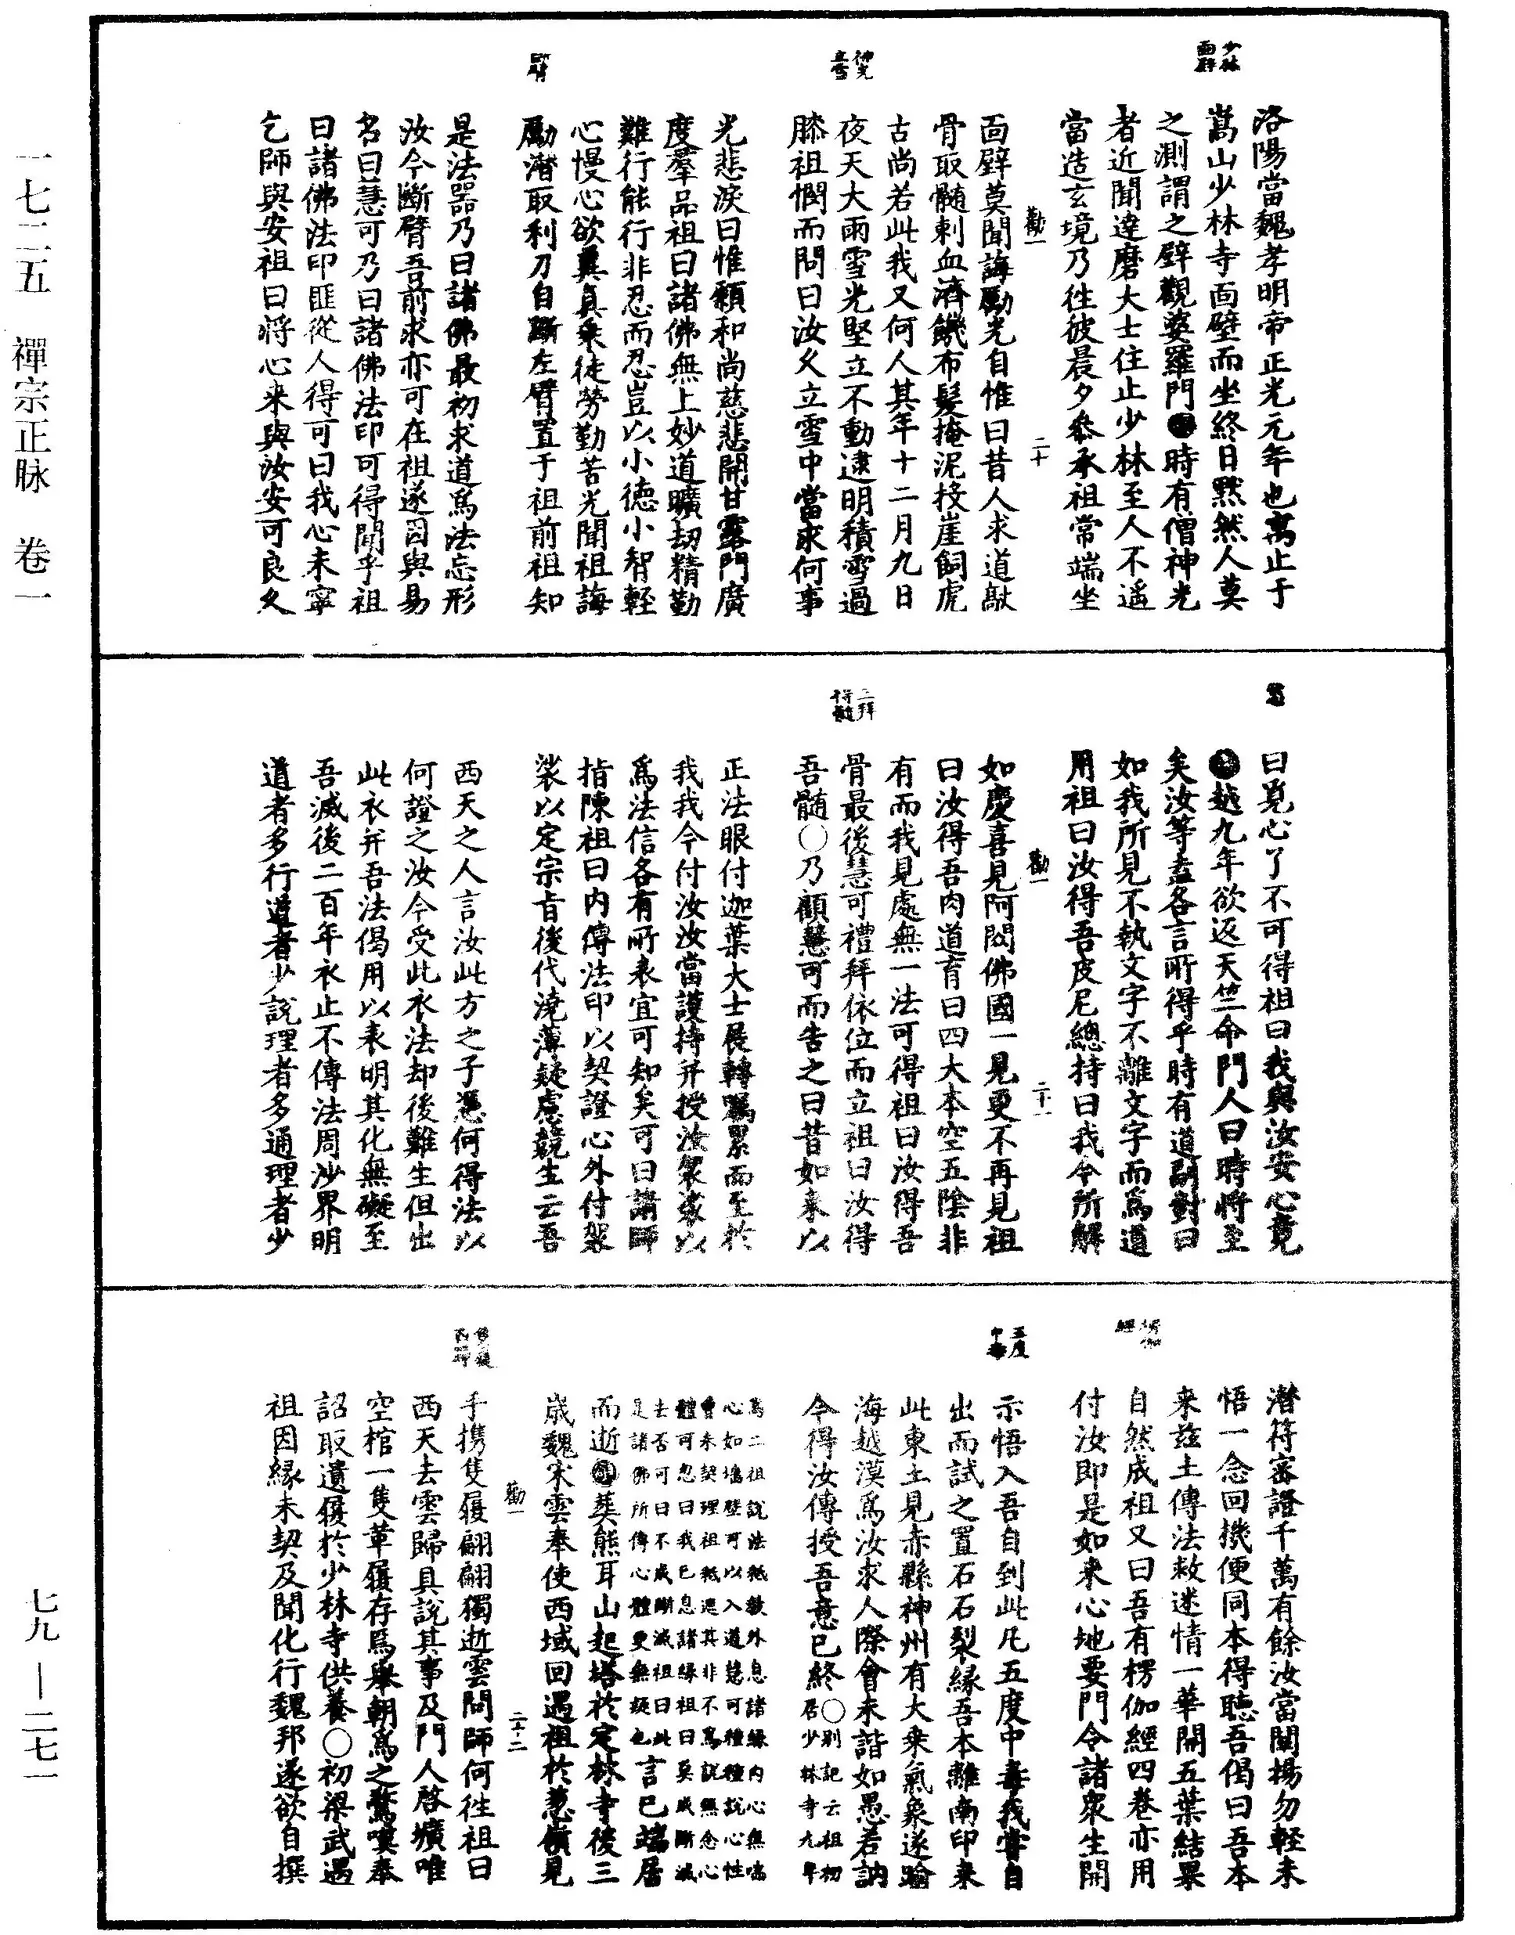 一七二五　禪宗正脉　卷一
七九—二七一
少林
面壁
洛陽當魏孝明帝正光元年也寓止于
嵩山少林寺面壁而坐終日默然人莫
之測謂之壁觀婆羅門時有僧神光
者近聞達磨大士住止少林至人不遙
當造玄境乃往彼晨夕參承祖常端坐
勸一　二十
面壁莫聞誨勵光自惟曰昔人求道敲
骨取髓刺血濟饑布髮掩泥投崖飼虎
古尚若此我又何人其年十二月九日
神光
立雪
夜天大雨雪光堅立不動遲明積雪過
膝祖憫而問曰汝久立雪中當求何事
光悲淚曰惟願和尚慈悲開甘露門廣
度羣品祖曰諸佛無上妙道曠劫精勤
難行能行非忍而忍豈以小德小智輕
心慢心欲冀真乘徒勞勤苦光聞祖誨
斷臂
勵潛取利刀自斷左臂置于祖前祖知
是法器乃曰諸佛最初求道爲法忘形
汝今斷臂吾前求亦可在祖遂因與易
名曰慧可乃曰諸佛法印可得聞乎祖
曰諸佛法印匪從人得可曰我心未寧
乞師與安祖曰將心來與汝安可良久
曰覓心了不可得祖曰我與汝安心竟
越九年欲返天竺命門人曰時將至
矣汝等盍各言所得乎時有道副對曰
如我所見不執文字不離文字而爲道
用祖曰汝得吾皮尼總持曰我今所解
勸一　二十一
如慶喜見阿閦佛國一見更不再見祖
曰汝得吾肉道育曰四大本空五陰非
有而我見處無一法可得祖曰汝得吾
三拜
得髓
骨最後慧可禮拜依位而立祖曰汝得
吾髓〇乃顧慧可而告之曰昔如來以
正法眼付迦葉大士展轉囑累而至於
我我今付汝汝當護持并授汝袈裟以
爲法信各有所表宜可知矣可曰請師
指陳祖曰内傳法印以契證心外付袈
裟以定宗旨後代澆薄疑慮競生云吾
西天之人言汝此方之子憑何得法以
何證之汝今受此衣法却後難生但出
此衣并吾法偈用以表明其化無礙至
吾滅後二百年衣止不傳法周沙界明
道者多行道者少說理者多通理者少
潛符密證千萬有餘汝當闡揚勿輕未
悟一念回機便同本得聽吾偈曰吾本
來茲土傳法救迷情一華開五葉結果
楞伽
經
自然成祖又曰吾有楞伽經四卷亦用
付汝即是如來心地要門令諸衆生開
五度
中毒
示悟入吾自到此凡五度中毒我嘗自
出而試之置石石裂緣吾本離南印來
此東土見赤縣神州有大乘氣象遂踰
海越漠爲汝求人際會未諧如愚若訥
今得汝傳授吾意已終〇别記云祖初居少林寺九年
爲二祖說法秖敎外息諸緣内心無喘
心如墻壁可以入道慧可種種說心性
曾未契理祖秖遮其非不爲說無念心
體可忽曰我已息諸緣祖曰莫成斷滅
去否可曰不成斷滅祖曰此
是諸佛所傳心體更無疑也言已端居
而逝葬熊耳山起塔於定林寺後三
歲魏宋雲奉使西域回遇祖於葱嶺見
勸一　二十二
隻履
西歸
手攜隻履翩翩獨逝雲問師何往祖曰
西天去雲歸具說其事及門人啓壙唯
空棺一隻革履存焉舉朝爲之驚嘆奉
詔取遺履於少林寺供養〇初梁武遇
祖因緣未契及聞化行魏邦遂欲自撰